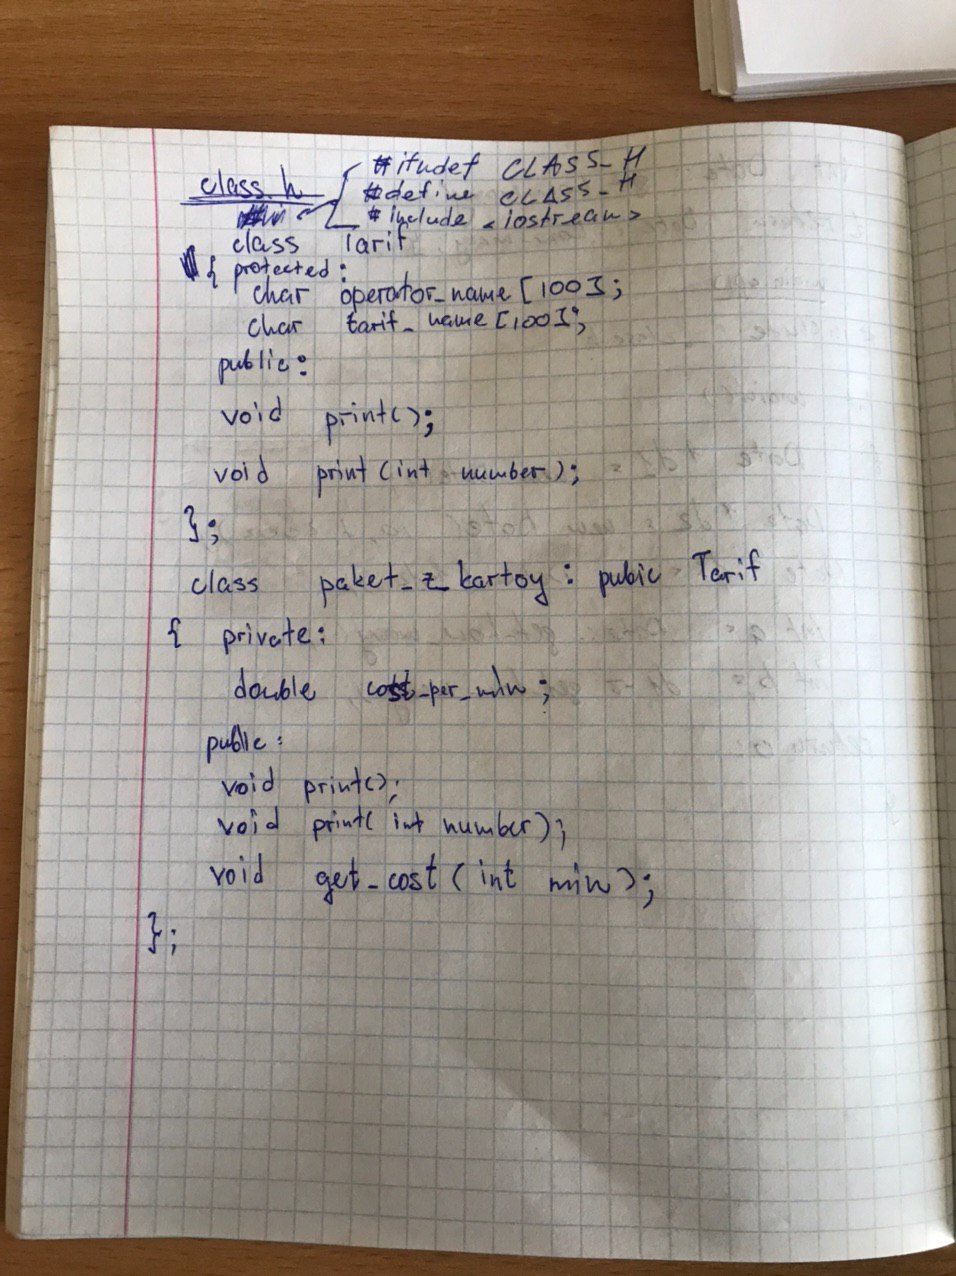 class.h
#ifndef CLASS_H
#define CLASS_H
#include <iostream>
class Tarif
{ protected:
char operator_name[100];
char tarif_name[100];
public:
void print();
void print(int number);
};
class paket_z_kartoy : pubic Tarif
{ private:
double cost_per_min;
public:
void print();
void print( int number);
void get_cost (int min);
};